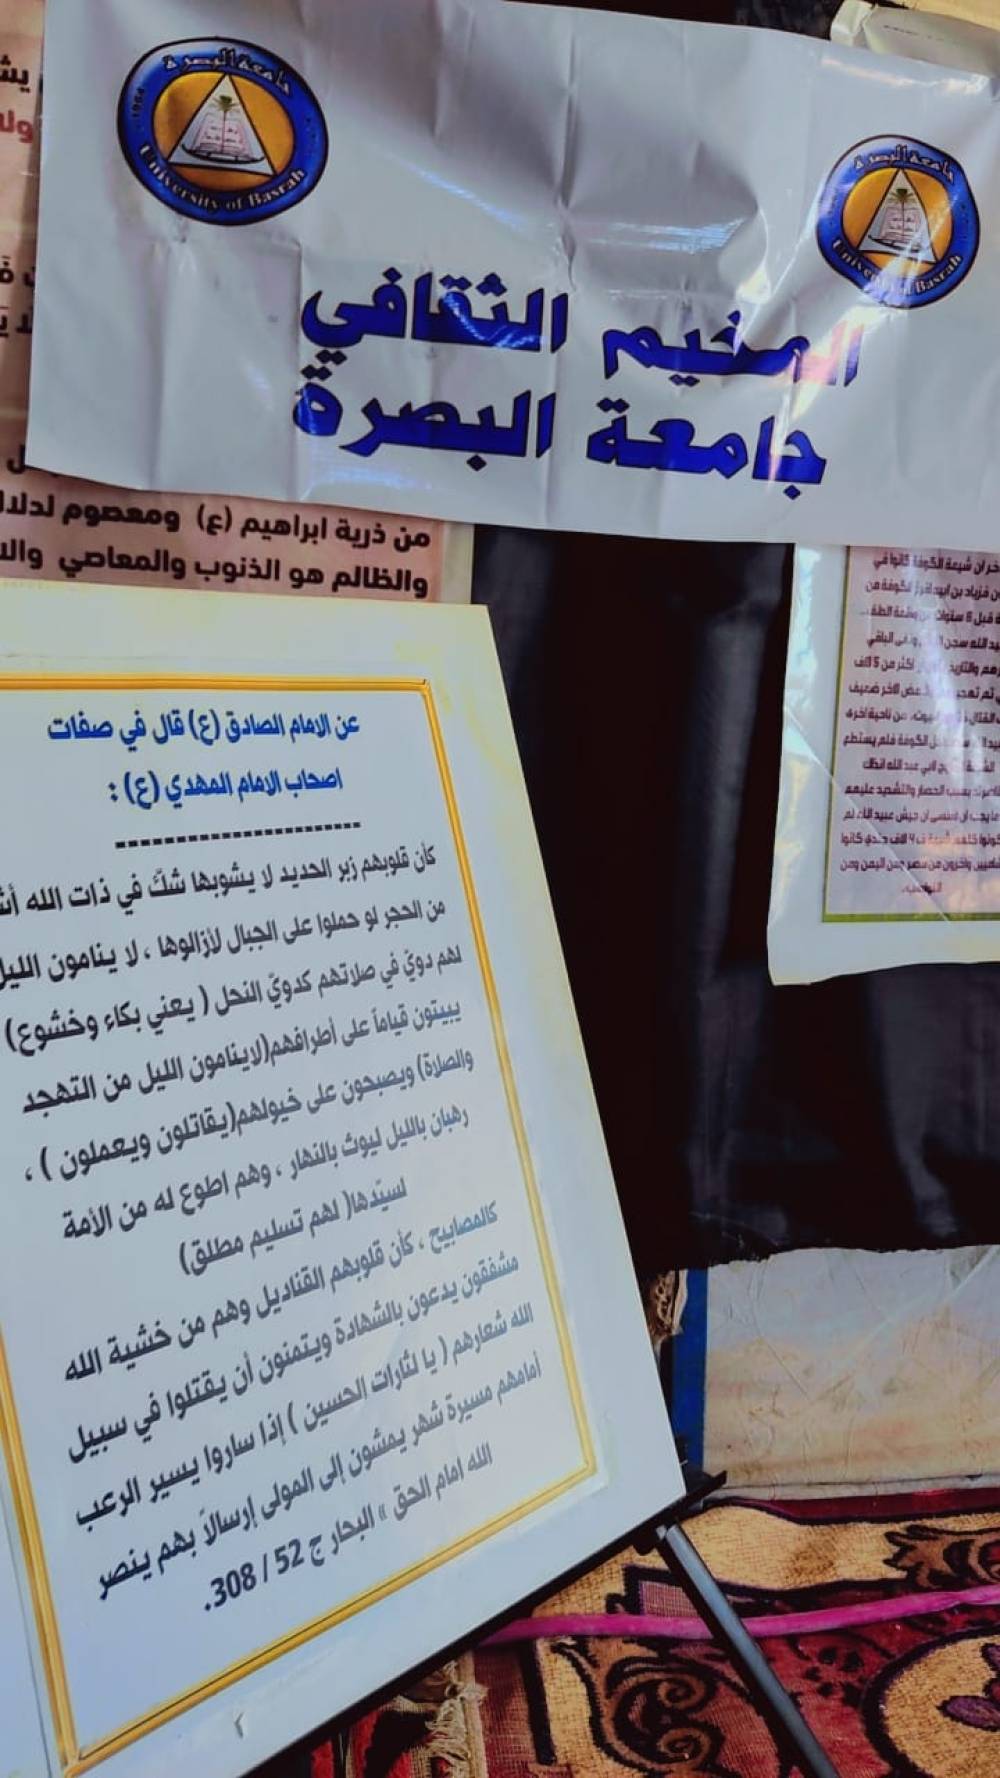 جامعة البصرة
1964
University of Basrah
جامعة البصرة
University of Basrah
المخيم الثقافي
جامعة البصرة
من ذرية ابراهيم (ع) ومعصوم لدلا
والظالم هو الذنوب والمعاصي والا
عن الامام الصادق (ع) قال في صفات
اصحاب الامام المهدي (ع) :
كأن قلوبهم زبر الحديد لا يشوبها شكّ في ذات الله أش
من الحجر لو حملوا على الجبال لأزالوها ، لا ينامون الليل
لهم دويّ في صلاتهم كدويّ النحل ( يعني بكاء وخشوع)
يبيتون قياماً على أطرافهم(لاينامون الليل من التهجد
والصلاة) ويصبحون على خيولهم(يقاتلون ويعملون ) ،
رهبان بالليل ليوث بالنهار ، وهم اطوع له من الأمة
لسيّدها( لهم تسليم مطلق)
كالمصابيح ، كأن قلوبهم القناديل وهم من خشية الله
مشفقون يدعون بالشهادة ويتمنون أن يقتلوا في سبيل
الله شعارهم ( يا لثارات الحسين ) إذا ساروا يسير الرعب
أمامهم مسيرة شهر يمشون إلى المولى إرسالاً بهم ينصر
الله امام الحق » البحار ج 52 / 308.
خر ان شيعة الكوفة كانوا في
قبل 8 سنوات من وقعة الطف
رهم والتاريخ اكثر من 5 الاف
البعض الاخر ضعيف
من ناحية اخرى
الكوفة فلم يستطع
لابي عبد الله انذاك
بسبب الحصار والتشديد عليهم
ان جيش عبيد الله لم
جندي كانوا
واخرون من مصر ومن اليمن ومن
النواصب.